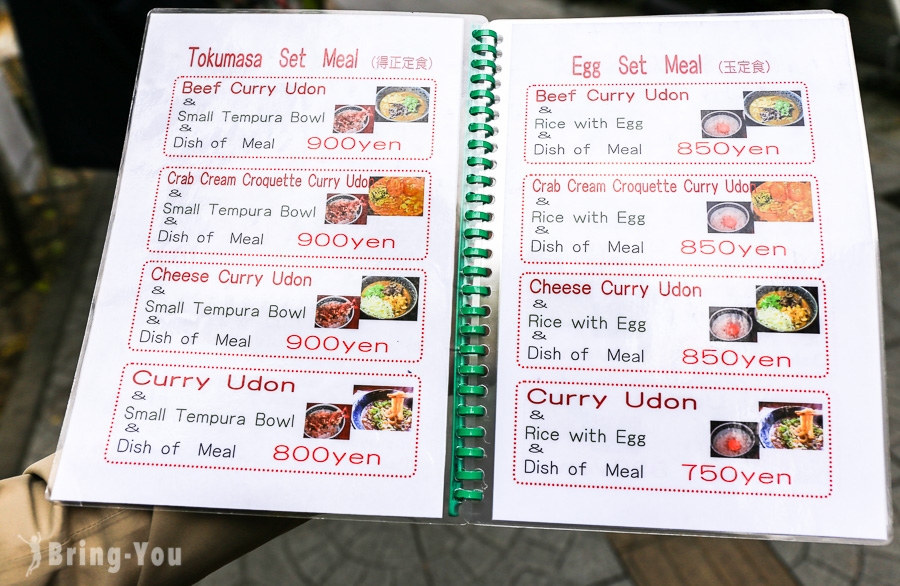 Tokumasa Set Meal (得正定食)
Beef Curry Udon
&
Small Tempura Bowl
&
Dish of Meal 900yen
Crab Cream Croquette Curry Udo
&
Small Tempura Bowl
&
Dish of Meal 900yen
Cheese Curry Udon
&
Small Tempura Bowl
&
Dish of Meal 900yen
Curry Udon
&
Small Tempura Bowl
&
Dish of Meal 800yen
Egg Set Meal (玉定食)
Beef Curry Udon
&
Rice with Egg
&
Dish of Meal 850yen
Crab Cream Croquette Curry Udo
&
Rice with Egg
&
Dish of Meal 850yen
Cheese Curry Udon
&
Rice with Egg
&
Dish of Meal 850yen
Curry Udon
&
Rice with Egg
&
Dish of Meal 750yen
Bring-You